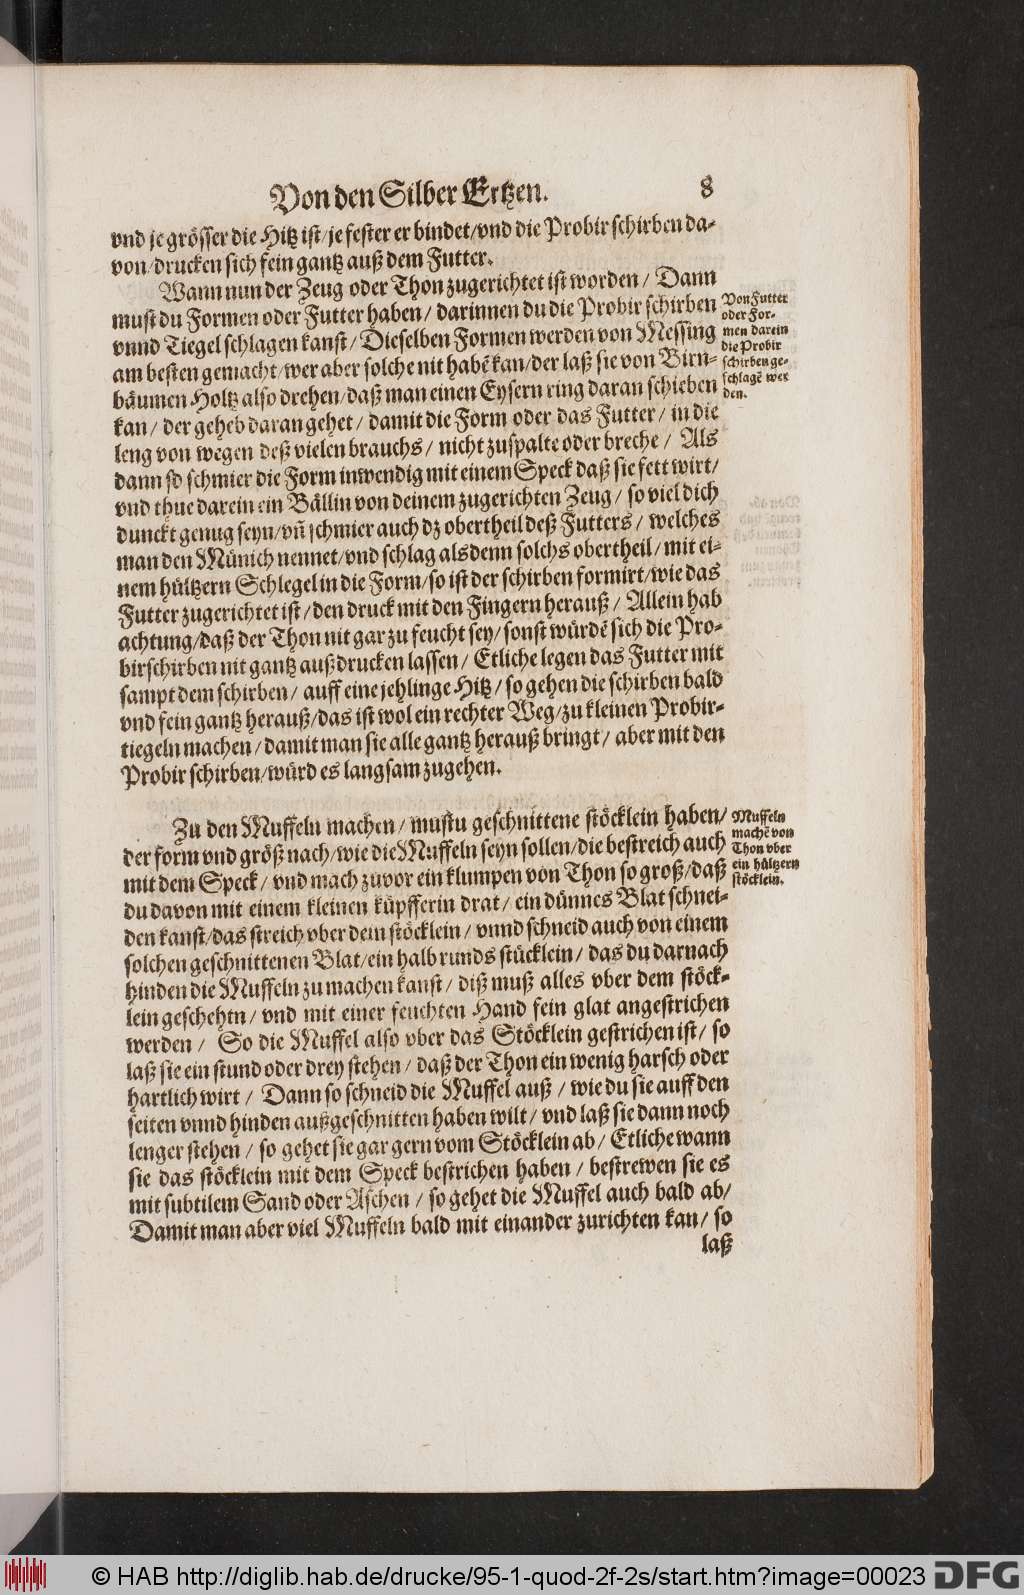 Von den Silber Ertzen.
8
vnd je grösser die Hitz ist/je fester er bindet/vnd die Probirschirben da-
von/drucken sich fein gantz auß dem Futter.
Wann nun der Zeug oder Thon zugerichtet ist worden/ Dann
must du Formen oder Futter haben/ darinnen du die Probir schirben
vnnd Tiegel schlagen kanst/ Dieselben Formen werden von Messing
am besten gemacht/wer aber solche nit habẽ kan/der laß sie von Birn-
bäumen Holtz also drehen/daß man einen Eysern ring daran schieben
kan/ der geheb daran gehet/ damit die Form oder das Futter/ in die
leng von wegen deß vielen brauchs/ nicht zuspalte oder breche/ Als
dann so schmier die Form inwendig mit einem Speck daß sie fett wirt/
vnd thue darein ein Bällin von deinem zugerichten Zeug/ so viel dich
dunckt genug seyn/vñ schmier auch dz obertheil deß Futters/ welches
man den Münich nennet/vnd schlag als denn solchs obertheil/mit ei-
nem hültzern Schlegel in die Form/so ist der schirben formirt/wie das
Futter zugerichtet ist/den druck mit den Fingern herauß/ Allein hab
achtung/daß der Thon nit gar zu feucht sey/sonst würdẽ sich die Pro-
birschirben nit gantz auß drucken lassen/ Etliche legen das Futter mit
sampt dem schirben/ auff eine jehlinge Hitz/so gehen die schirben bald
vnd fein gantz herauß/das ist wol ein rechter Weg/zu kleinen Probir-
tiegeln machen/damit man sie alle gantz herauß bringt/ aber mit den
Probir schirben/würd es langsam zugehen.
Von Futter
oder For-
men darein
die Probir
schirben ge-
schlagẽ wer
den.
Zu den Muffeln machen/ mustu geschnittene stöcklein haben/
der form vnd größ nach/wie die Muffeln seyn sollen/die bestreich auch
mit dem Speck/ vnd mach zuvor ein klumpen von Thon so groß/daß
du davon mit einem kleinen küpfferin drat/ ein dünnes Blat schnei-
den kanst/das streich vber dem stöcklein/ vnnd schneid auch von einem
solchen geschnittenen Blat/ein halb runds stücklein/ das du darnach
hinden die Muffeln zu machen kanst/ diß muß alles vber dem stöck-
lein geschehen/ vnd mit einer feuchten Hand fein glat angestrichen
werden/ So die Muffel also vber das Stöcklein gestrichen ist/ so
laß sie ein stund oder drey stehen/ daß der Thon ein wenig harsch oder
hartlich wirt/ Dann so schneid die Muffel auß/ wie du sie auff den
seiten vnnd hinden außgeschnitten haben wilt/ vnd laß sie dann noch
lenger stehen/ so gehet sie gar gern vom Stöcklein ab/ Etliche wann
sie das stöcklein mit dem Speck bestrichen haben/ bestrewen sie es
mit subtilem Sand oder Aschen/ so gehet die Muffel auch bald ab/
Damit man aber viel Muffeln bald mit einander zurichten kan/ so
laß
Muffeln
machẽ von
Thon vber
ein hültzern
stöcklein.
© HAB http://diglib.hab.de/drucke/95-1-quod-2f-2s/start.htm?image=00023
DFG